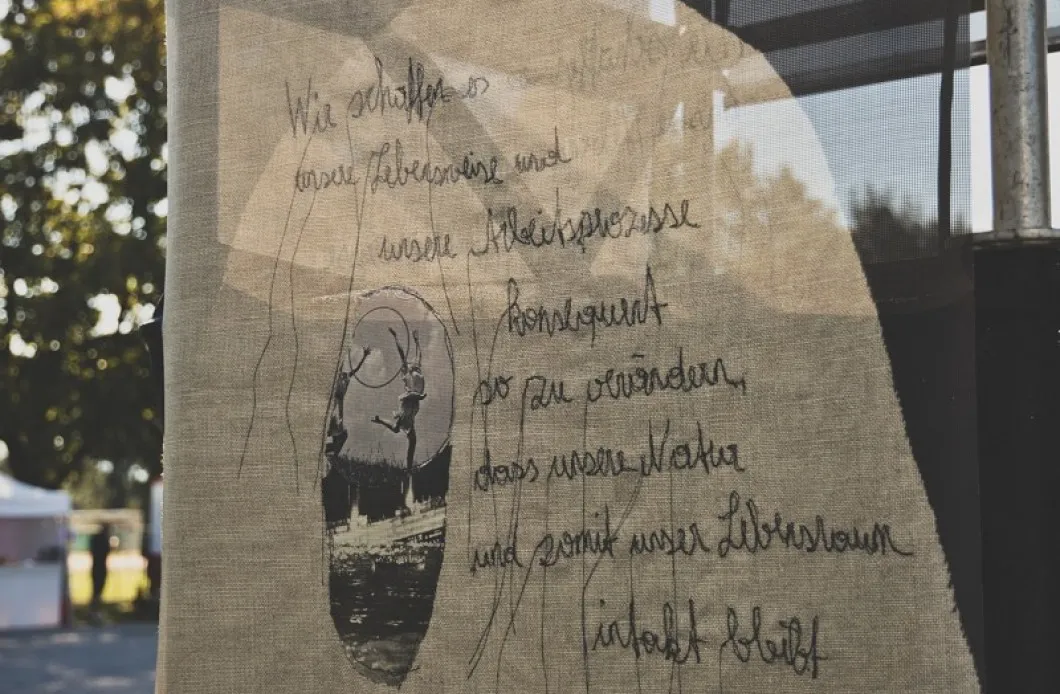 Wie schaffen es
unsere Lebensweise und
unsere Arbeitsprozesse
konsequent
so zu verändern,
dass unsere Natur
und somit unser Lebensraum
intakt bleibt